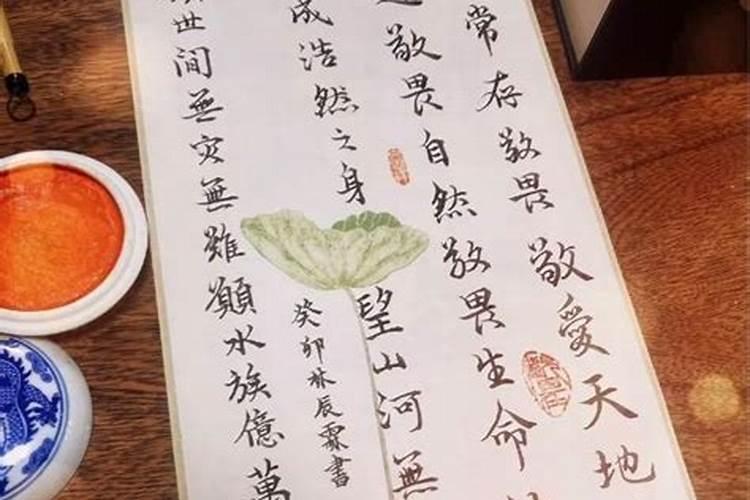 常存敬畏敬愛天地
敬畏自然敬畏生命
成浩然之身望山河無
世間無災無難願水族億萬
癸卯林辰霖書